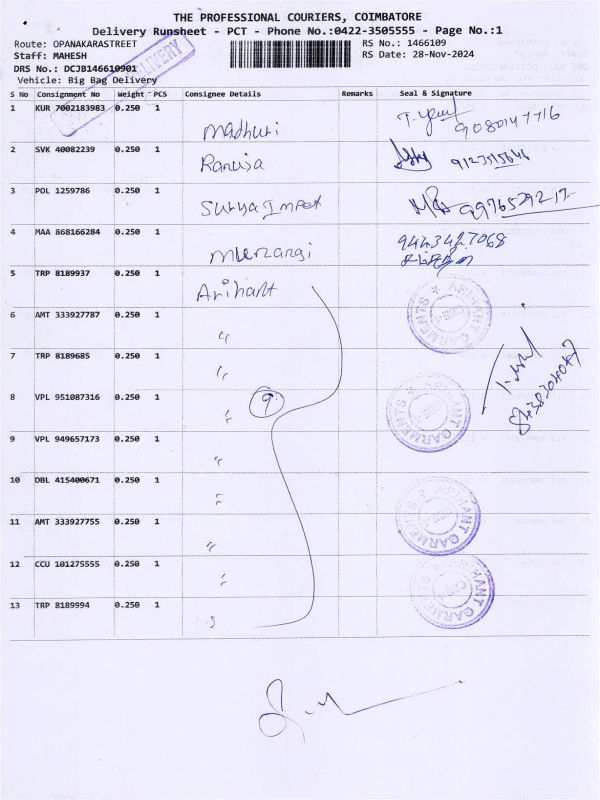 THE PROFESSIONAL COURIERS, COIMBATORE
Delivery Runsheet - PCT - Phone No.:0422-3505555 - Page No.:1
Route: OPANAKARASTREET RS No.: 1466109
Staff: MAHESH RS Date: 28-Nov-2024
DRS No.: DCJB146610901
Vehicle: Big Bag Delivery
DELIVERY
S No Consignment No Weight PCS Consignee Details Remarks Seal & Signature
1 KUR 7002183983 0.250 1 Madhuri 9080147716
2 SVK 40082239 0.250 1
3 POL 1259786 0.250 1 Surya Impex
4 MAA 868166284 0.250 1 9443427068
5 TRP 8189937 0.250 1 Arihant ARIHANT GARMENTS
6 AMT 333927787 0.250 1 "
7 TRP 8189685 0.250 1 "
8 VPL 951087316 0.250 1 " 9 ARIHANT GARMENTS
9 VPL 949657173 0.250 1 "
10 DBL 415400671 0.250 1 " ARIHANT GARMENTS
11 AMT 333927755 0.250 1 "
12 CCU 101275555 0.250 1 " ARIHANT GARMENTS
13 TRP 8189994 0.250 1 "